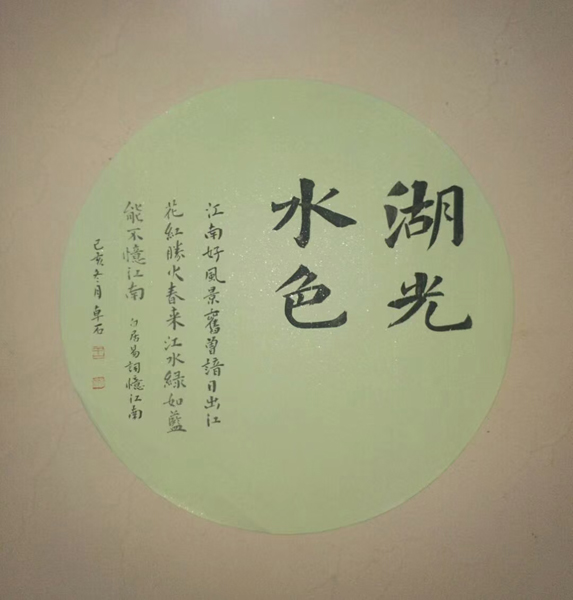 湖光
水色
江南好風景舊曾諳日出江
花紅勝火春来江水綠如藍
能不憶江南 白居易詞憶江南
己亥冬月卓石